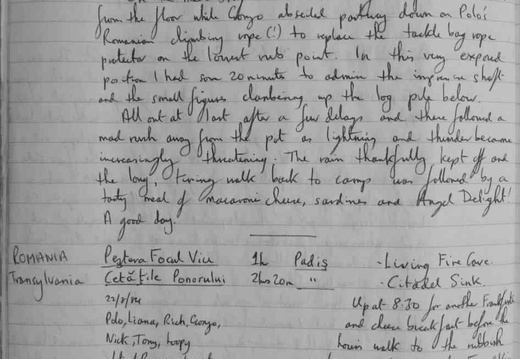 from the floor while Gonzo abseiled partway down on Polo's
Romanian climbing rope (!) to replace the tackle bag rope
protector on the lowest rub point. In this very exposed
position I had some 20 minutes to admire the impressive shaft
and the small figures clambering up the log pile below.
All out at last after a few delays and there followed a
mad rush away from the pot as lightning and thunder became
increasingly threatening. The rain thankfully kept off and
the long, tiring walk back to camp was followed by a
tasty meal of macaroni cheese, sardines and Angel Delight!
A good day.
ROMANIA Peştera Focul Viu 1h Padiş - Living Fire Cave.
Transylvania Cetăţile Ponorului 2hrs 20m " - Citadel Sink.
Up at 8.30 for another Frankfurter
Polo, Liana, Rich, Gonzo, and cheese breakfast before the
Nick, Tony, Loopy hours walk to the rubbish